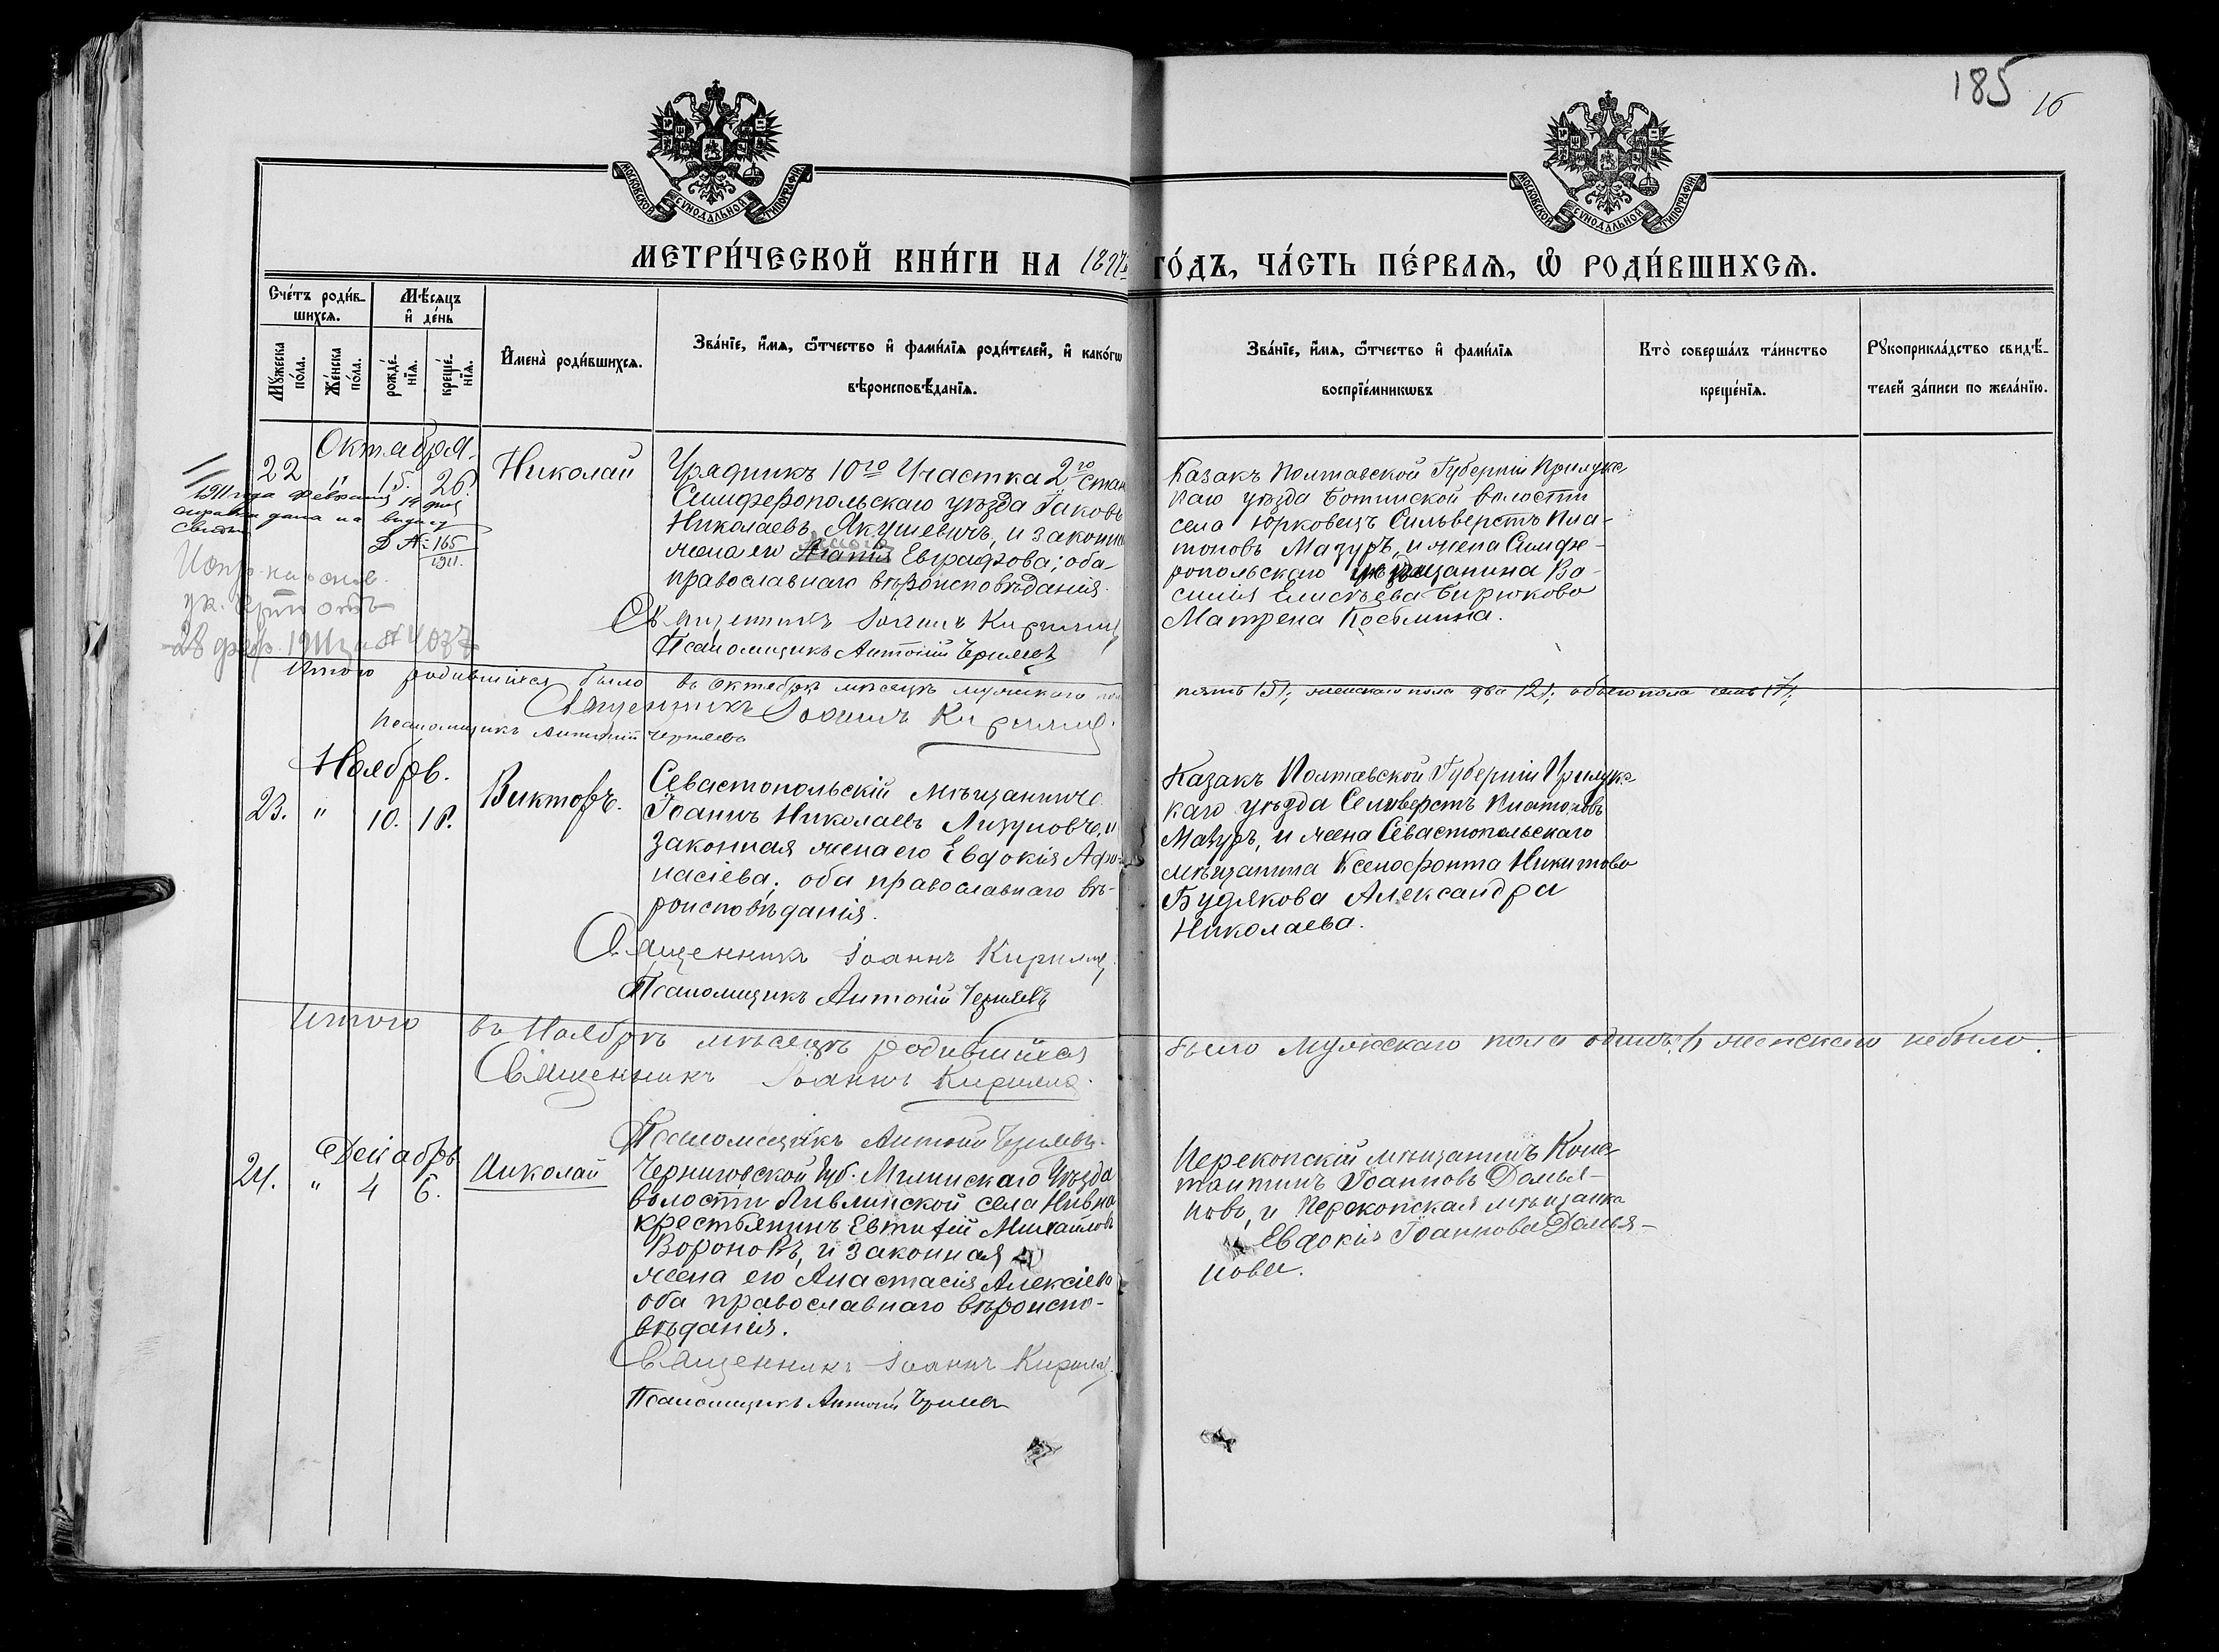 185
16
МОСКОВСКОЙ СѴНОДАЛЬНОЙ ТИПОГРАФІИ
МОСКОВСКОЙ СѴНОДАЛЬНОЙ ТИПОГРАФІИ
МЕТРИ́ЧЕСКОЙ КНИ́ГИ НА 1897 ГО́ДЪ, ЧА́СТЬ ПЕ́РВАѦ, Ѽ РОДИ́ВШИХСѦ.
Сче́тъ роди́в-
шихсѧ.
Мѣ́сѧцъ
и҆ де́нь
Мꙋ́жеска
по́ла.
Же́нска
по́ла.
рожде́-
нїѧ.
креще́-
нїѧ.
И҆мена̀ роди́вшихсѧ.
Зва́нїе, и҆́мѧ, ѻ҆́тчество и҆ фами́лїѧ роди́телей, и҆ како́гѡ
вѣроисповѣ́данїѧ.
Зва́нїе, и҆́мѧ, ѻ҆́тчество и҆ фами́лїѧ
воспрїе́мникѡвъ
Кто̀ соверша́лъ та́инство
креще́нїѧ.
Рꙋкоприкла́дство свидѣ́-
телей за́писи по жела́нїю.
Октября.
22 " 15. 26. Николай
1911 года февраля 19 дня
справка дана на выдачу
Д № 165
1911.
28 фев. 1911 за № 4037
Урядникъ 10го Участка 2го стан
Симферопольскаго уѣзда Іаковъ
Николаевъ Якушевичъ, и законн
жена его Агапія Евграфова; оба
православнаго вѣроисповѣданія.
Священникъ Іоаннъ Кирилл
Псаломщикъ Антоній Черняевъ
Казакъ Полтавской Губерніи Прилукс
каго уѣзда Ботинской волости
села Юрковецъ Сильверстъ Пла-
тоновъ Мазуръ, и жена Симфе-
ропольскаго мѣщанина Ва-
силія Елисѣева Бирюкова
Матрена Косьмина.
Итого родившихся было въ октябрѣ мѣсяцѣ мужскаго пол пять /5/, женскаго пола два /2/, обоего пола семь /7/,
Священникъ Іоаннъ Кирилл
Псаломщикъ Антоній Черняевъ
Ноябрь.
23. " 10. 18. Викторъ.
Севастопольскій мѣщанинъ
Іоаннъ Николаевъ Лизуновъ, и
законная жена его Евдокія Афа-
насіева; оба православнаго вѣ-
роисповѣданія.
Священникъ Іоаннъ Кирилл
Псаломщикъ Антоній Черняевъ
Казакъ Полтавской Губерніи Прилукс
каго уѣзда Селиверстъ Платоновъ
Мазуръ, и жена Севастопольскаго
мѣщанина Ксенофонта Никитова
Будякова Александра
Николаева.
Итого въ Ноябрѣ мѣсяцѣ родившихся было мужскаго пола одинъ /1/ женскаго небыло.
Священникъ Іоаннъ Кирилл
Псаломщикъ Антоній Черняевъ
Декабрь
24. " 4 6. Николай
Черниговской Губ. Мглинскаго Уѣзда
волости Ливлинской села Нивна
крестьянинъ Евтифій Михаиловъ
Вороновъ, и законная
жена его Анастасія Алексіева
оба православнаго вѣроиспо-
вѣданія.
Священникъ Іоаннъ Кирилл
Псаломщикъ Антоній Черняевъ
Перекопскій мѣщанинъ Конс
тантинъ Іоанновъ Домья-
новъ, и Перекопская мѣщанка
Евдокія Іоаннова Домья-
нова.